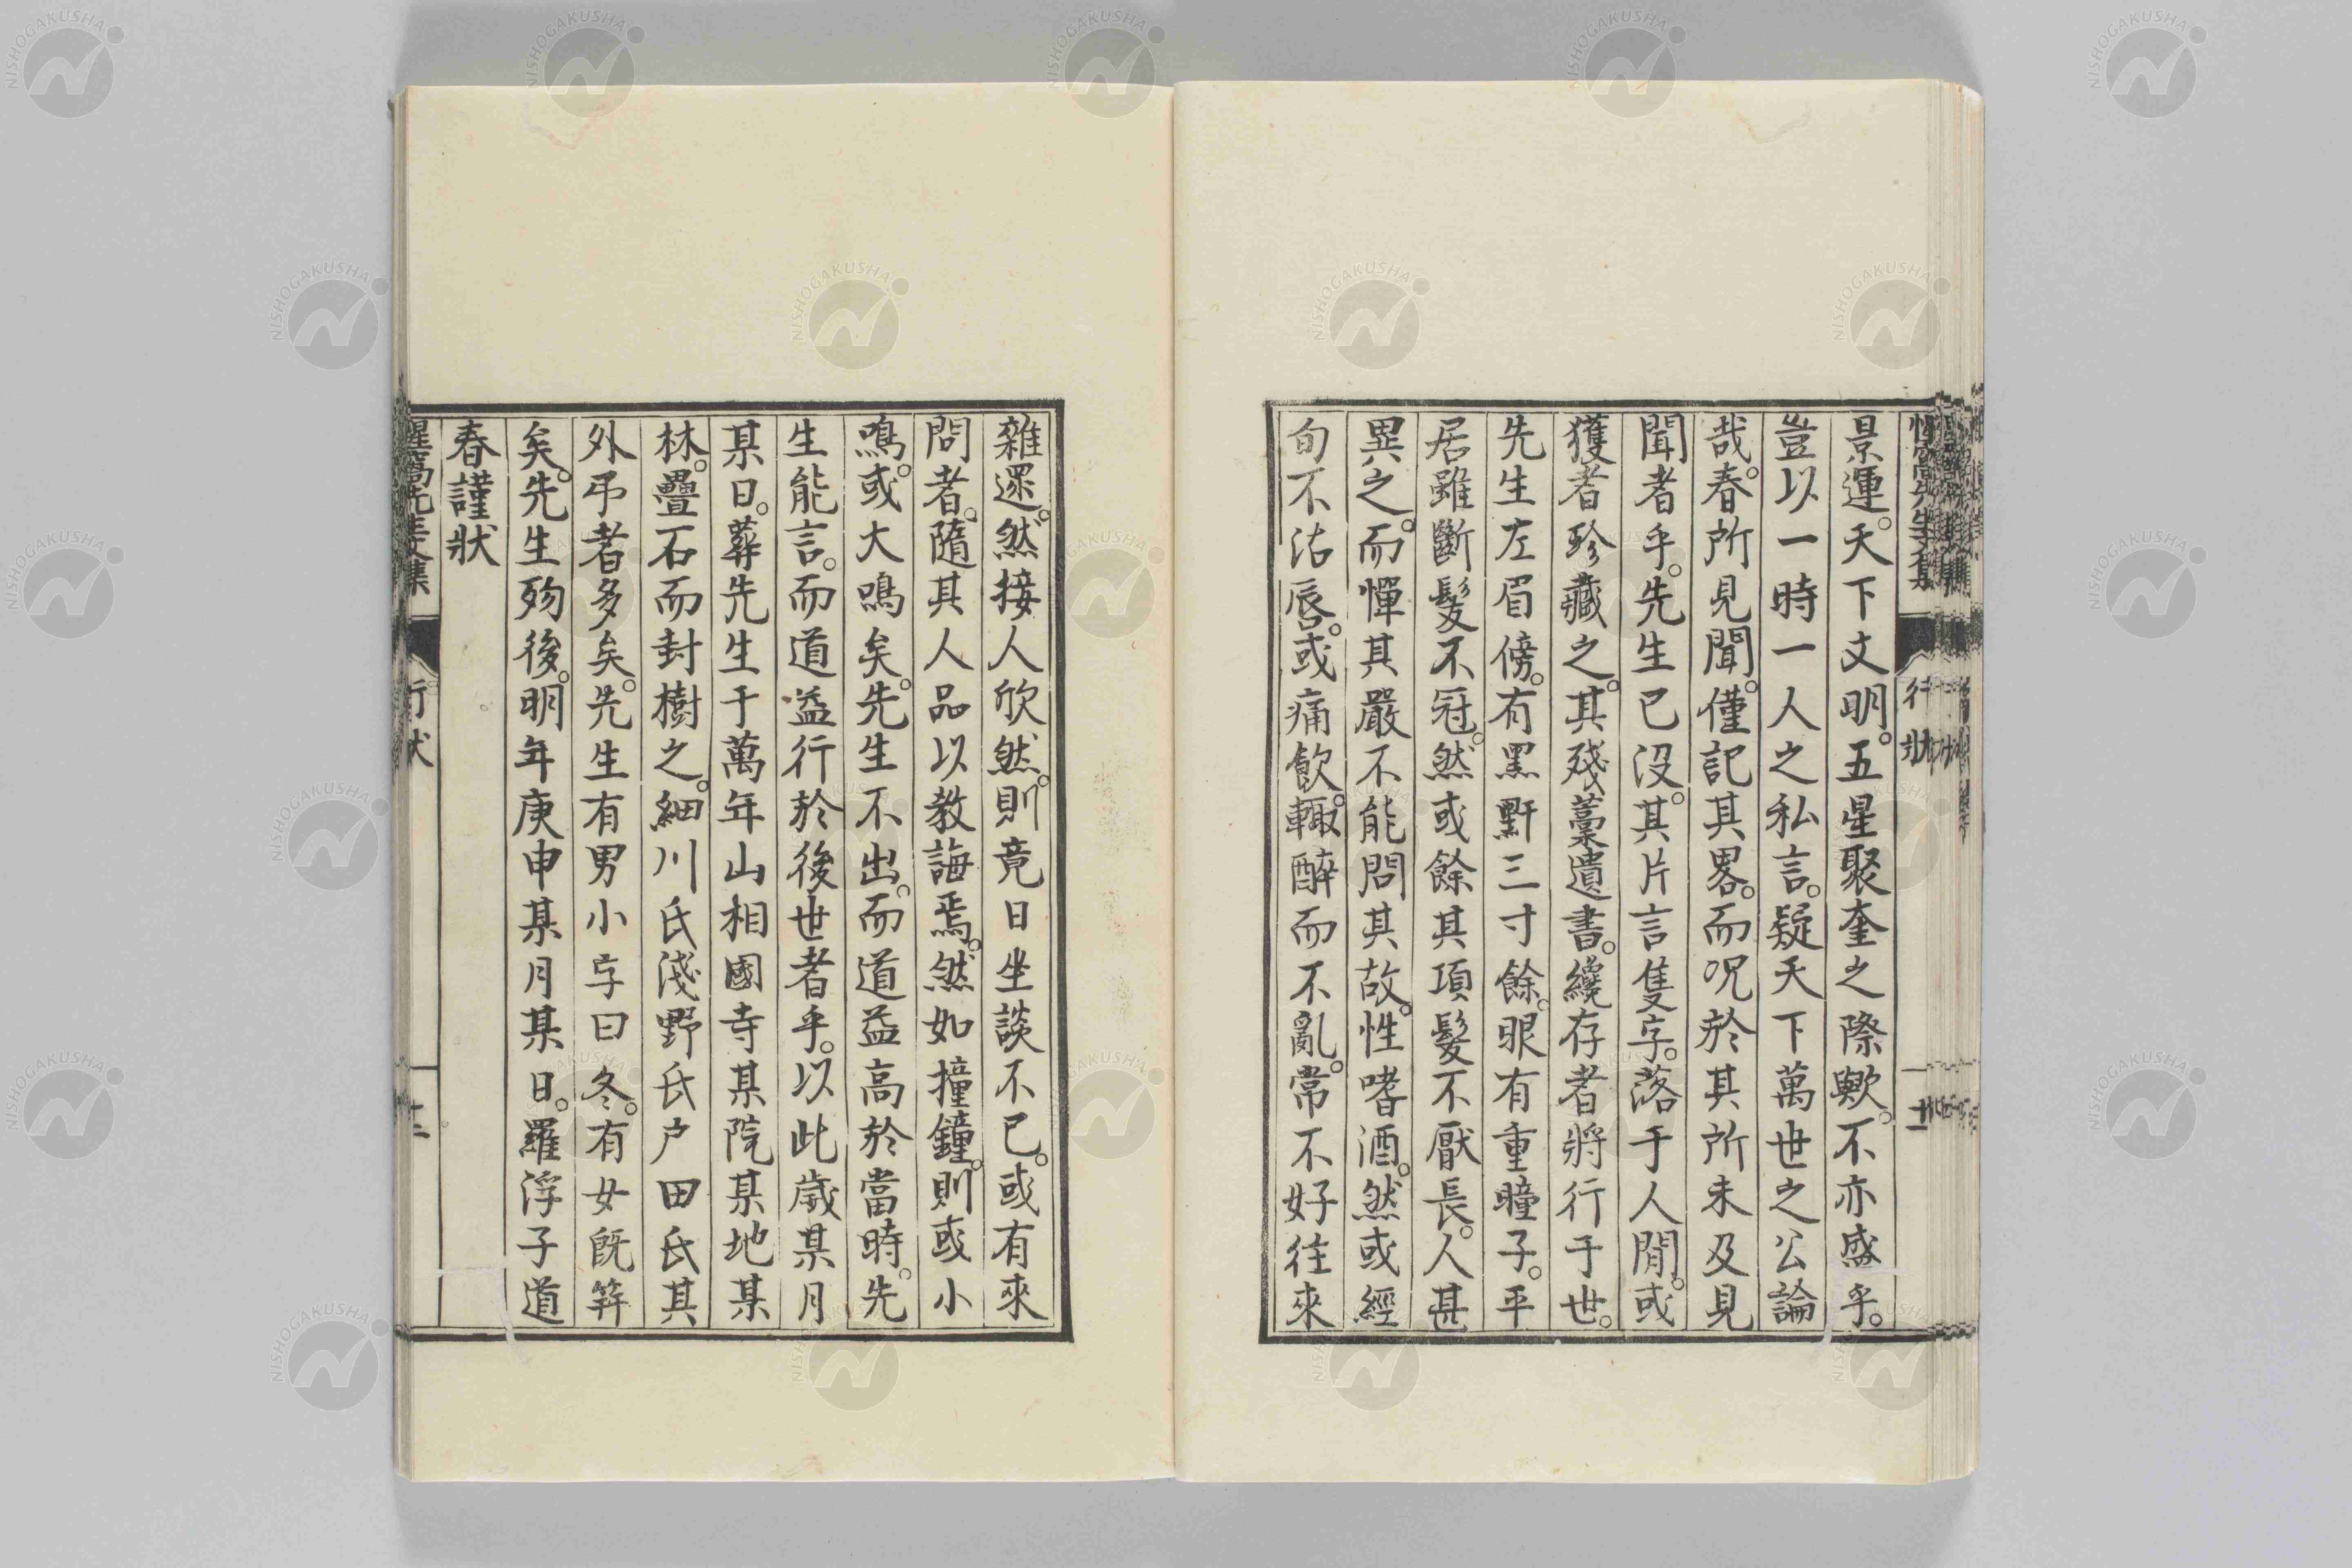 景運。天下文明。五星聚奎之際歟。不亦盛乎。
豈以一時一人之私言。疑天下萬世之公論
哉。春所見聞。僅記其畧。而况於其所未及見
聞者乎。先生已没。其片言隻字。落于人間。或
獲者珍藏之。其殘藁遺書。纔存者將行于世。
先生左眉傍。有黑黚三寸餘。眼有重瞳子。平
居雖斷髮不冠。然或餘其項髮不厭長。人甚
異之。而憚其嚴不能問其故。性嗜酒。然或經
旬不沾唇。或痛飲。輙醉而不亂。常不好往來
雜還。然接人欣然。則竟日坐談不已。或有來
問者。隨其人品以教誨焉。然如撞鐘。則或小
鳴。或大鳴矣。先生不出。而道益高於當時。先
生能言。而道益行於後世者乎。以此歲某月
某日。葬先生于萬年山相國寺某院某地某
林。疊石而封樹之。細川氏淺野氏戶田氏其
外弔者多矣。先生有男小字曰冬。有女既笄
矣。先生歿後。明年庚申某月某日。羅浮子道
春謹狀
行狀
行狀
NISHOGAKUSHA